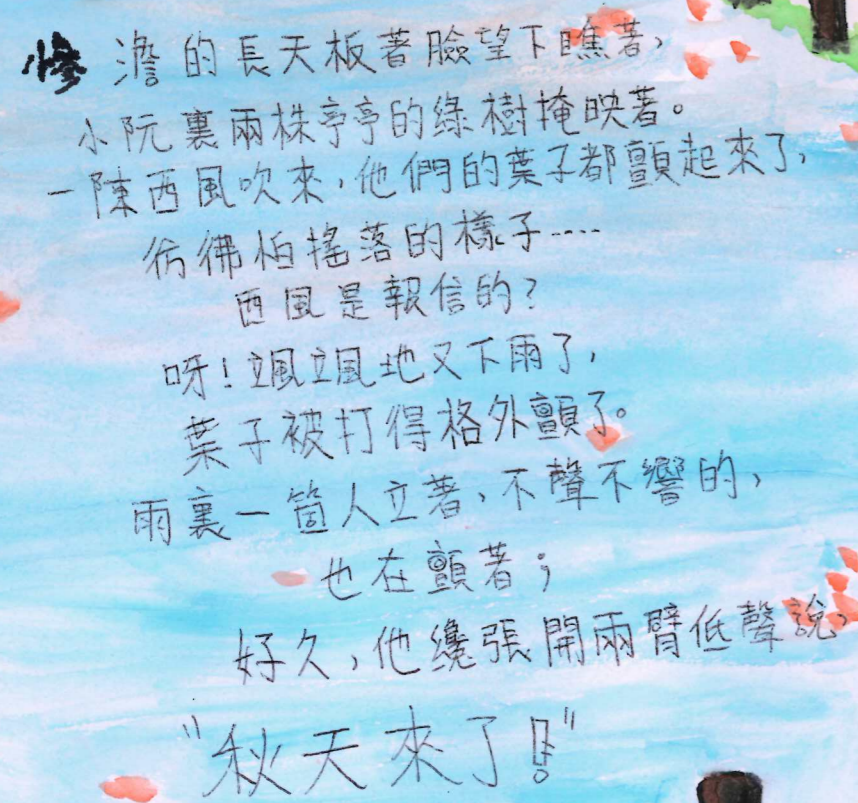 慘澹的長天板著臉望下瞧著，
小阮裏兩株亭亭的綠樹掩映著。
一陳西風吹來，他們的葉子都顫起來了，
彷彿怕搖落的樣子....
西風是報信的？
呀！颯颯地又下雨了，
葉子被打得格外顫了。
雨裏一箇人立著，不聲不響的，
也在顫著；
好久，他纔張開兩臂低聲說，
"秋天來了！"